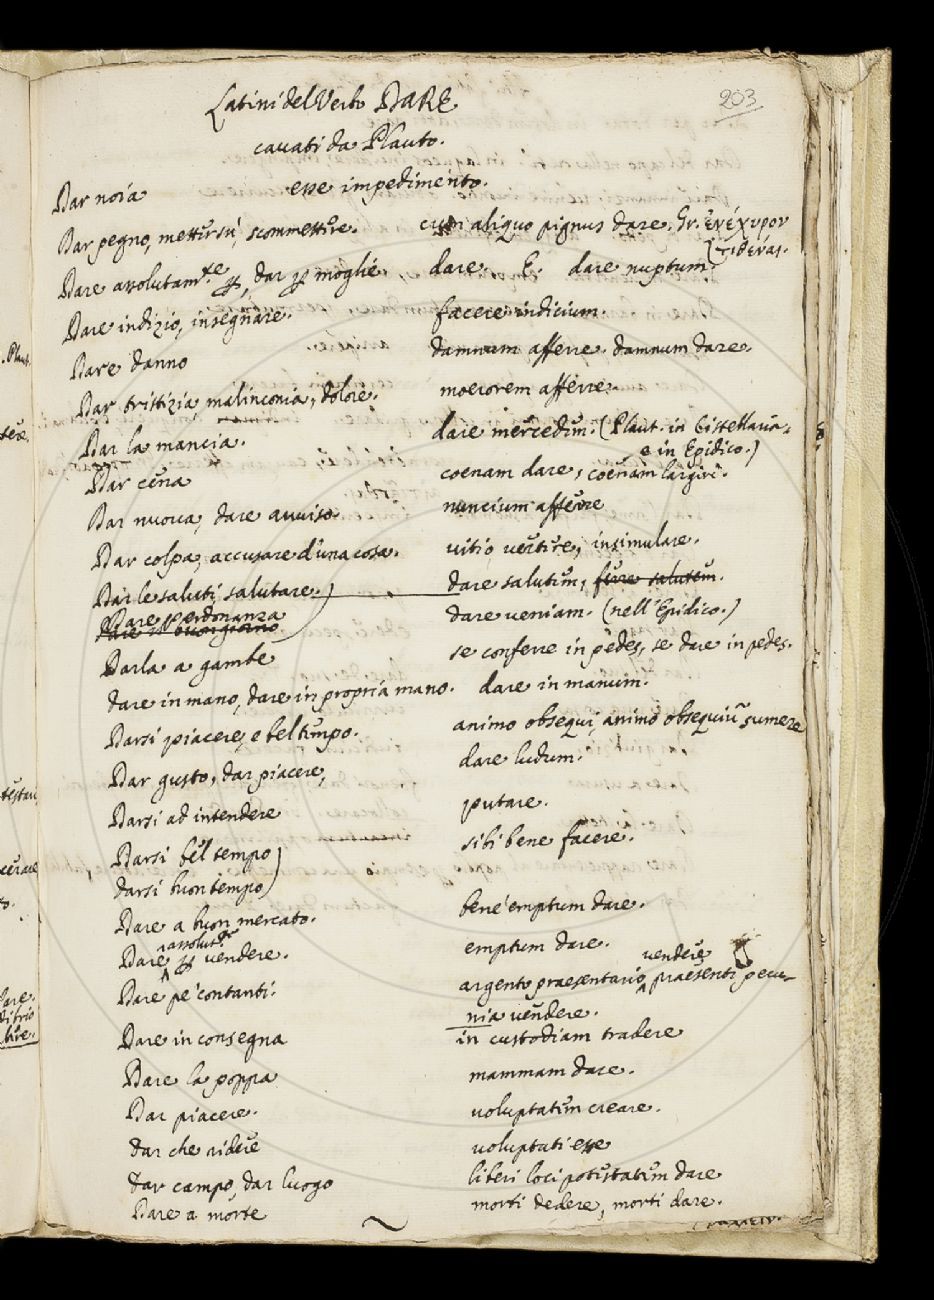 203
Latini del Verbo DARE
cavati da Plauto.
Dar noia esse impedimento.
Dar pegno, metter sù, scommettere. cum aliquo pignus dare. Gr. ἐνέχυρον
τιθέναι.
Dare assolutam.te p, dar p moglie. dare. E. dare nuptum.
Dare indizio, insegnare. facere indicium.
Dare danno damnum afferre. damnum dare.
Dar tristizia, malinconia, dolore. moerorem afferre.
Dar la mancia. dare mercedem. (Plaut. in Cistellaria,
e in Epidico.)
Dar cena coenam dare, coenam largiri.
Dar nuova, dare avviso nuncium afferre
Dar colpa, accusare d'una cosa. vitio vertere, insimulare.
Dar le saluti, salutare.) dare salutem, ferre salutem.
Dare perdonanza dare veniam. (nell'Epidico.)
dare il buongiorno
Darla a gambe se conferre in pedes, se dare in pedes.
dare in mano, dare in propria mano. dare in manum.
Darsi piacere, e bel tempo. animo obsequi, animo obsequiũ sumere
Dar gusto, dar piacere, dare ludum.
Darsi ad intendere putare.
Darsi bel tempo) sibi bene facere.
darsi buon tempo)
Dare a buon mercato. bene emptum dare.
assolut.te
Dare p vendere. emptum dare.
vendere
Dare pe' contanti. argento praesentario, praesenti pecu-
nia vendere.
Dare in consegna in custodiam tradere
Dare la poppa mammam dare.
Dar piacere. voluptatem creare.
dar che ridere voluptati esse
dar campo, dar luogo liberi loci potestatem dare
Dare a morte morti dedere, morti dare.